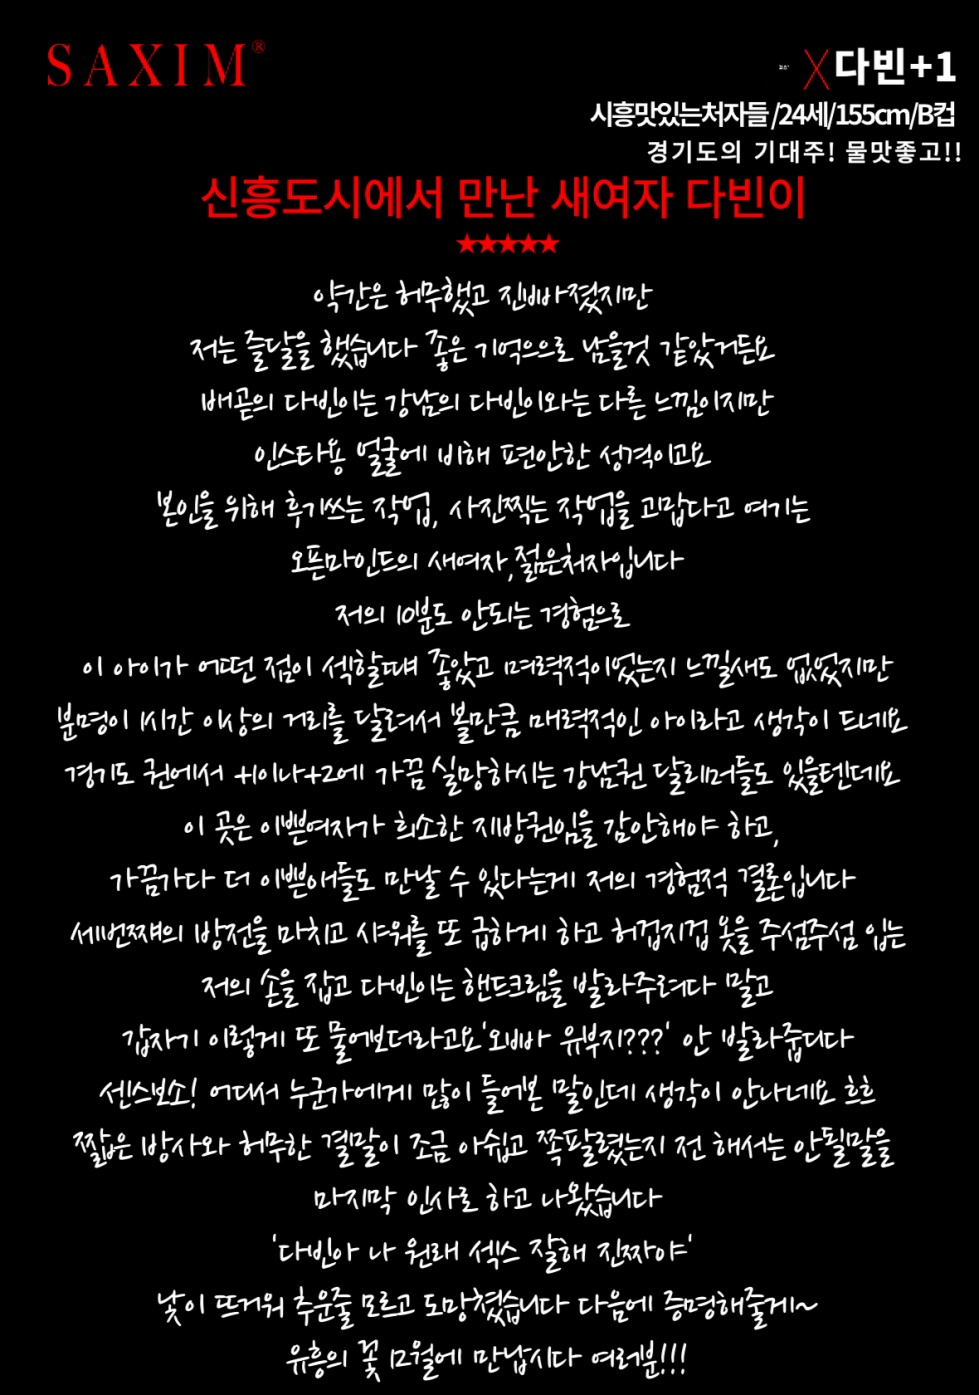 SAXIM®
X다빈+1
시흥맛있는처자들/24세/155cm/B컵
경기도의 기대주! 물맛좋고!!
신흥도시에서 만난 새여자 다빈이
★★★★★
약간은 허무했고 진빠졌지만
저는 즐달을 했습니다 좋은 기억으으로 남을것 같았거든요
배곧의 다빈이는 강남의 다빈이와는 다른 느낌이지만
인스타용 얼굴에 비해 편안한 성격이고요
본인을 위해 후기쓰는 작업, 사진찍는 작업을 고맙다고 여기는
오픈마인드의 새여자,젊은처자입니다
저의 10분도 안되는 경험으로
이 아이가 어떤 점이 섹할때 좋았고 며력적이었는지 느낄새도 없었지만
분명이 1시간 이상의 거리를 달려서 볼만큼 매력적인 아이라고 생각이 드네요
경기도 권에서 +1이나+2에 가끔 실망하시는 강남권 달리머들도 있을텐데요
이 곳은 이쁜여자가 희소한 지방권임을 감안해야 하고,
가끔가다 더 이쁜애들도 만날 수 있다는게 저의 경험적 결론입니다
세번째의 방전을 마치고 샤워를 또 급하게 하고 허겁지겁 옷을 주섬주섬 입는
저의 손을 잡고 다빈이는 핸드크림을 발라주려다 말고
갑자기 이렇게 또 물어보더라고요'오빠 유부지???' 안 발라줍디다
센스보소! 어디서 누군가에게 많이 들어본 말인데 생각이 안나네요 흐흐
짧은 방사와 허무한 결말이 조금 아쉽고 쪽팔렸는지 전 해서는 안될말을
마지막 인사로 하고 나왔습니다
'다빈아 나 원래 섹스 잘해 진짜야'
낯이 뜨거워 추운줄 모르고 도망쳤습니다 다음에 증명해줄게~
유흥의 꽃 12월에 만납시다 여러분!!!